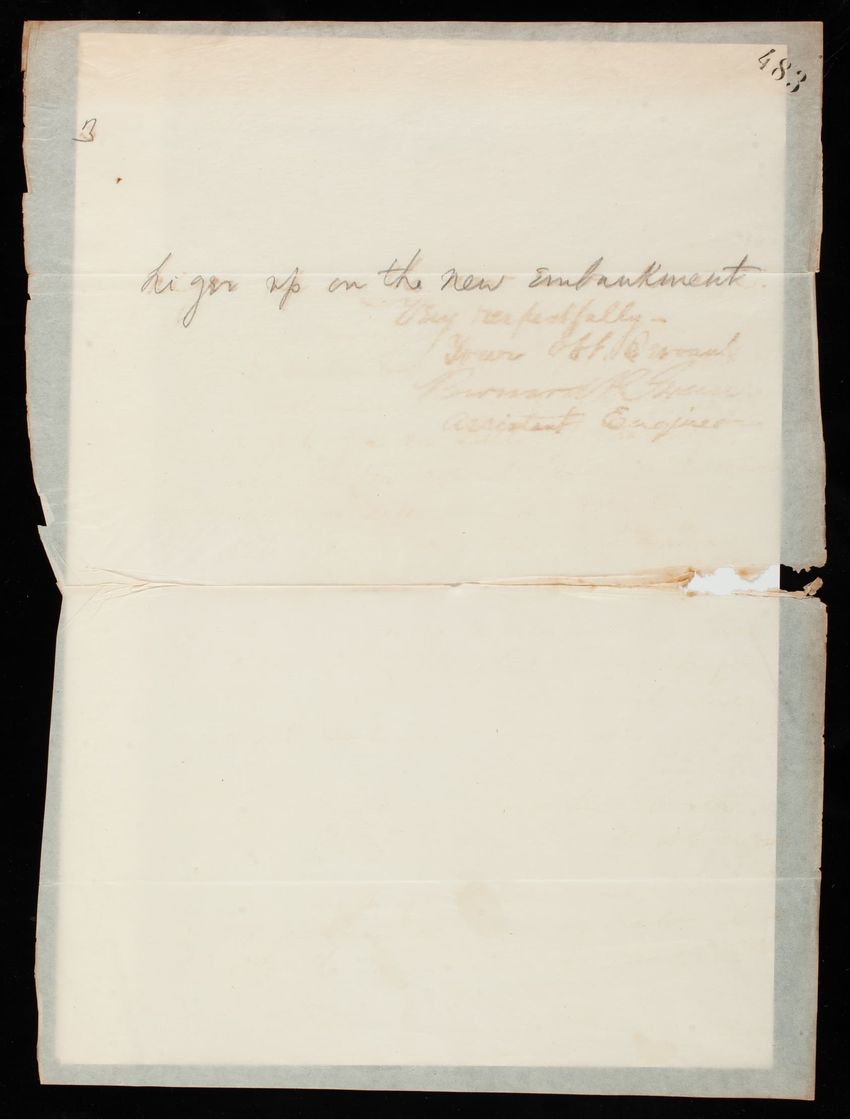 483
3
higer up on the new Embankment.
Very respectfully -
Your Obt. Servant
Bernard R. Green
Assistant Engineer